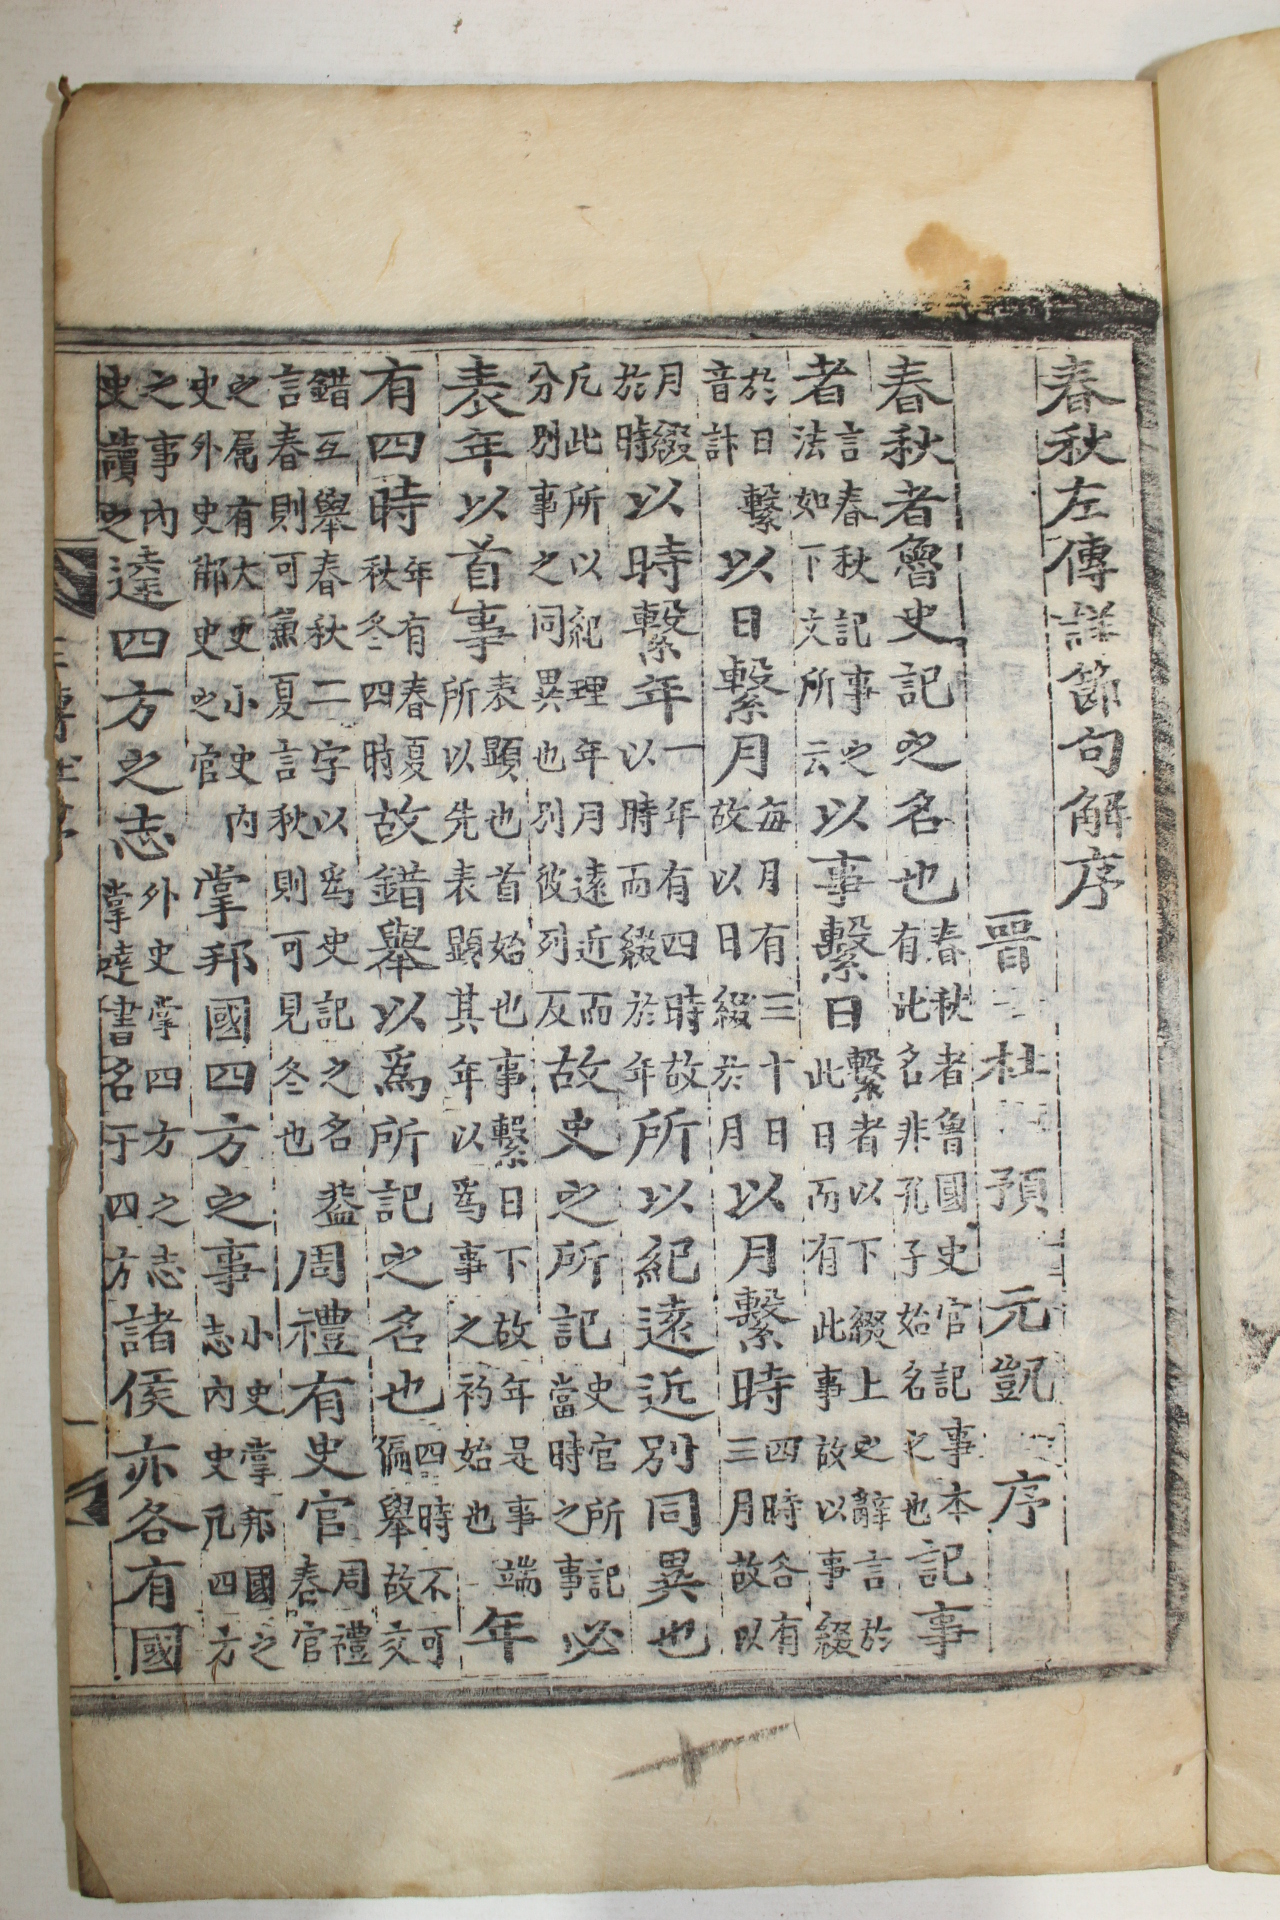 春秋左傳詳節句解序
晋 杜 預 元凱 序
春秋者魯史記之名也春秋者魯國史官記事本有此名非孔子始名之也記事
者言春秋記事之法如下文所云以事繫日繫者以下綴上之辭言於此日而有此事故以事綴
於日繫音計以日繫月每月有三十日故以日綴於月以月繫時四時各有三月故以
月綴於時以時繫年一年有四時故以時而綴於年所以紀遠近別同異也
凡此所以紀理年月遠近而分別事之同異也別彼列反故史之所記史官所記當時之事必
表年以首事表顯也首始也事繫日下故年是事端所以先表顯其年以爲事之初始也年
有四時年有春夏秋冬四時故錯舉以爲所記之名也四時不可偏舉故交
錯互舉春秋二字以爲史記之名盖言春則可兼夏言秋則可見冬也周禮有史官周禮春官
之属有大史小史內史外史御史之官掌邦國四方之事小史掌邦國之志內史凡四方
之事內史讀之達四方之志外史掌四方之志掌達書名于四方諸侯亦各有國